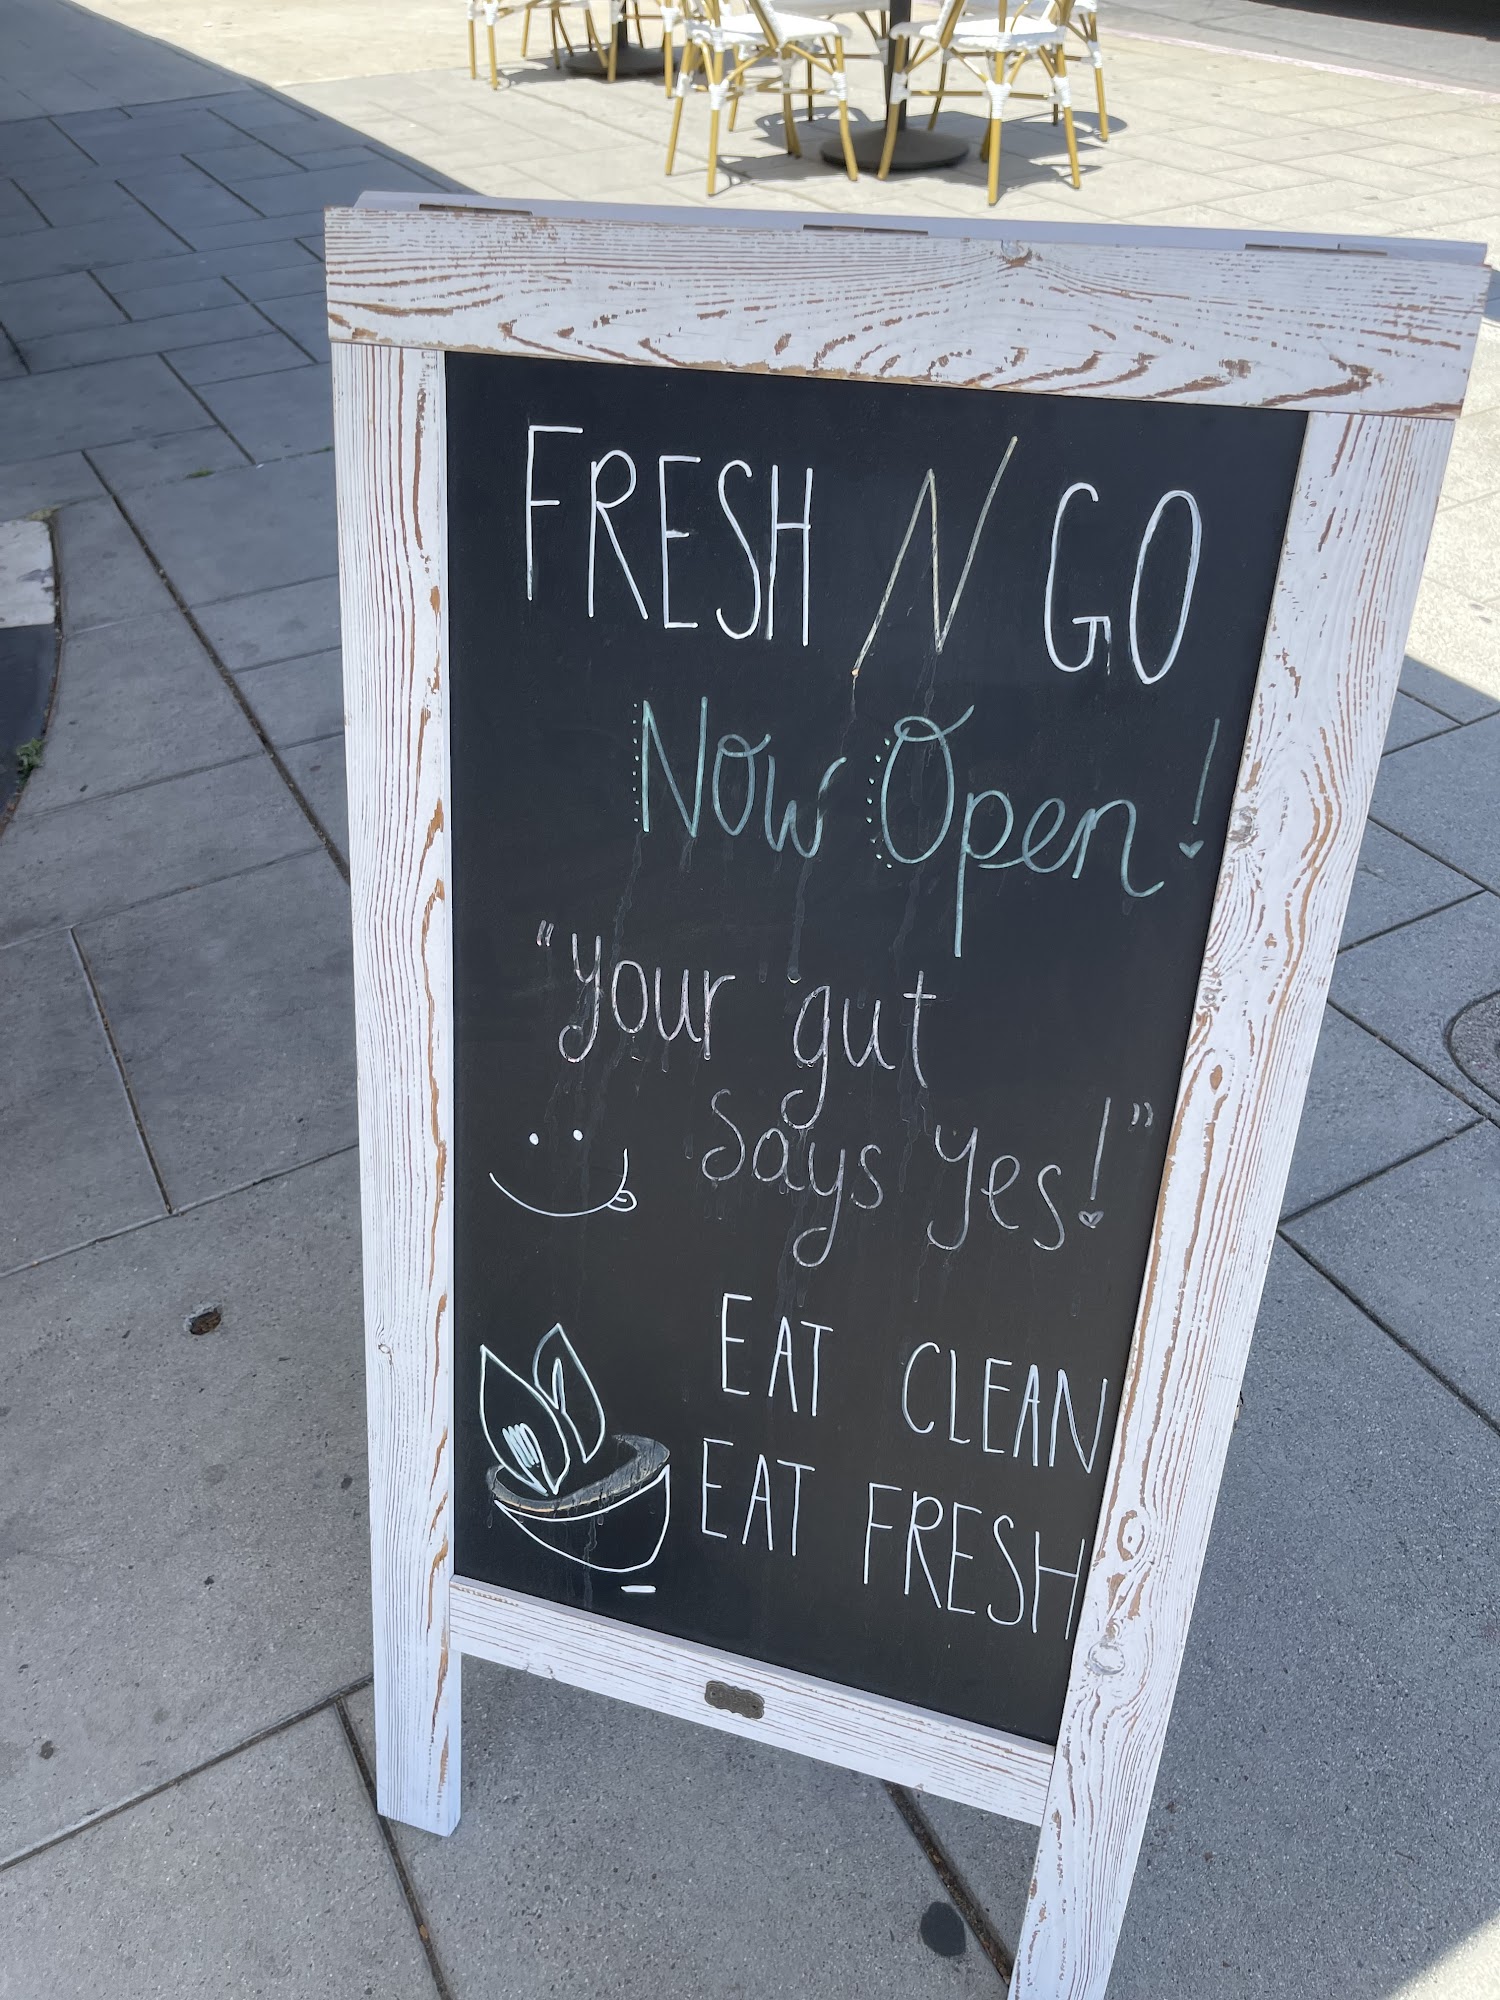 FRESH N GO
Now Open!
"your gut
says yes!"
EAT CLEAN
EAT FRESH